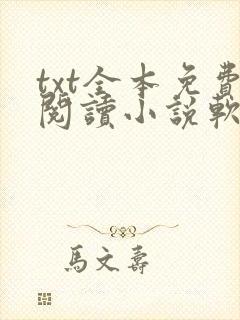 txt全本免費
閱讀小說軟
馬文壽